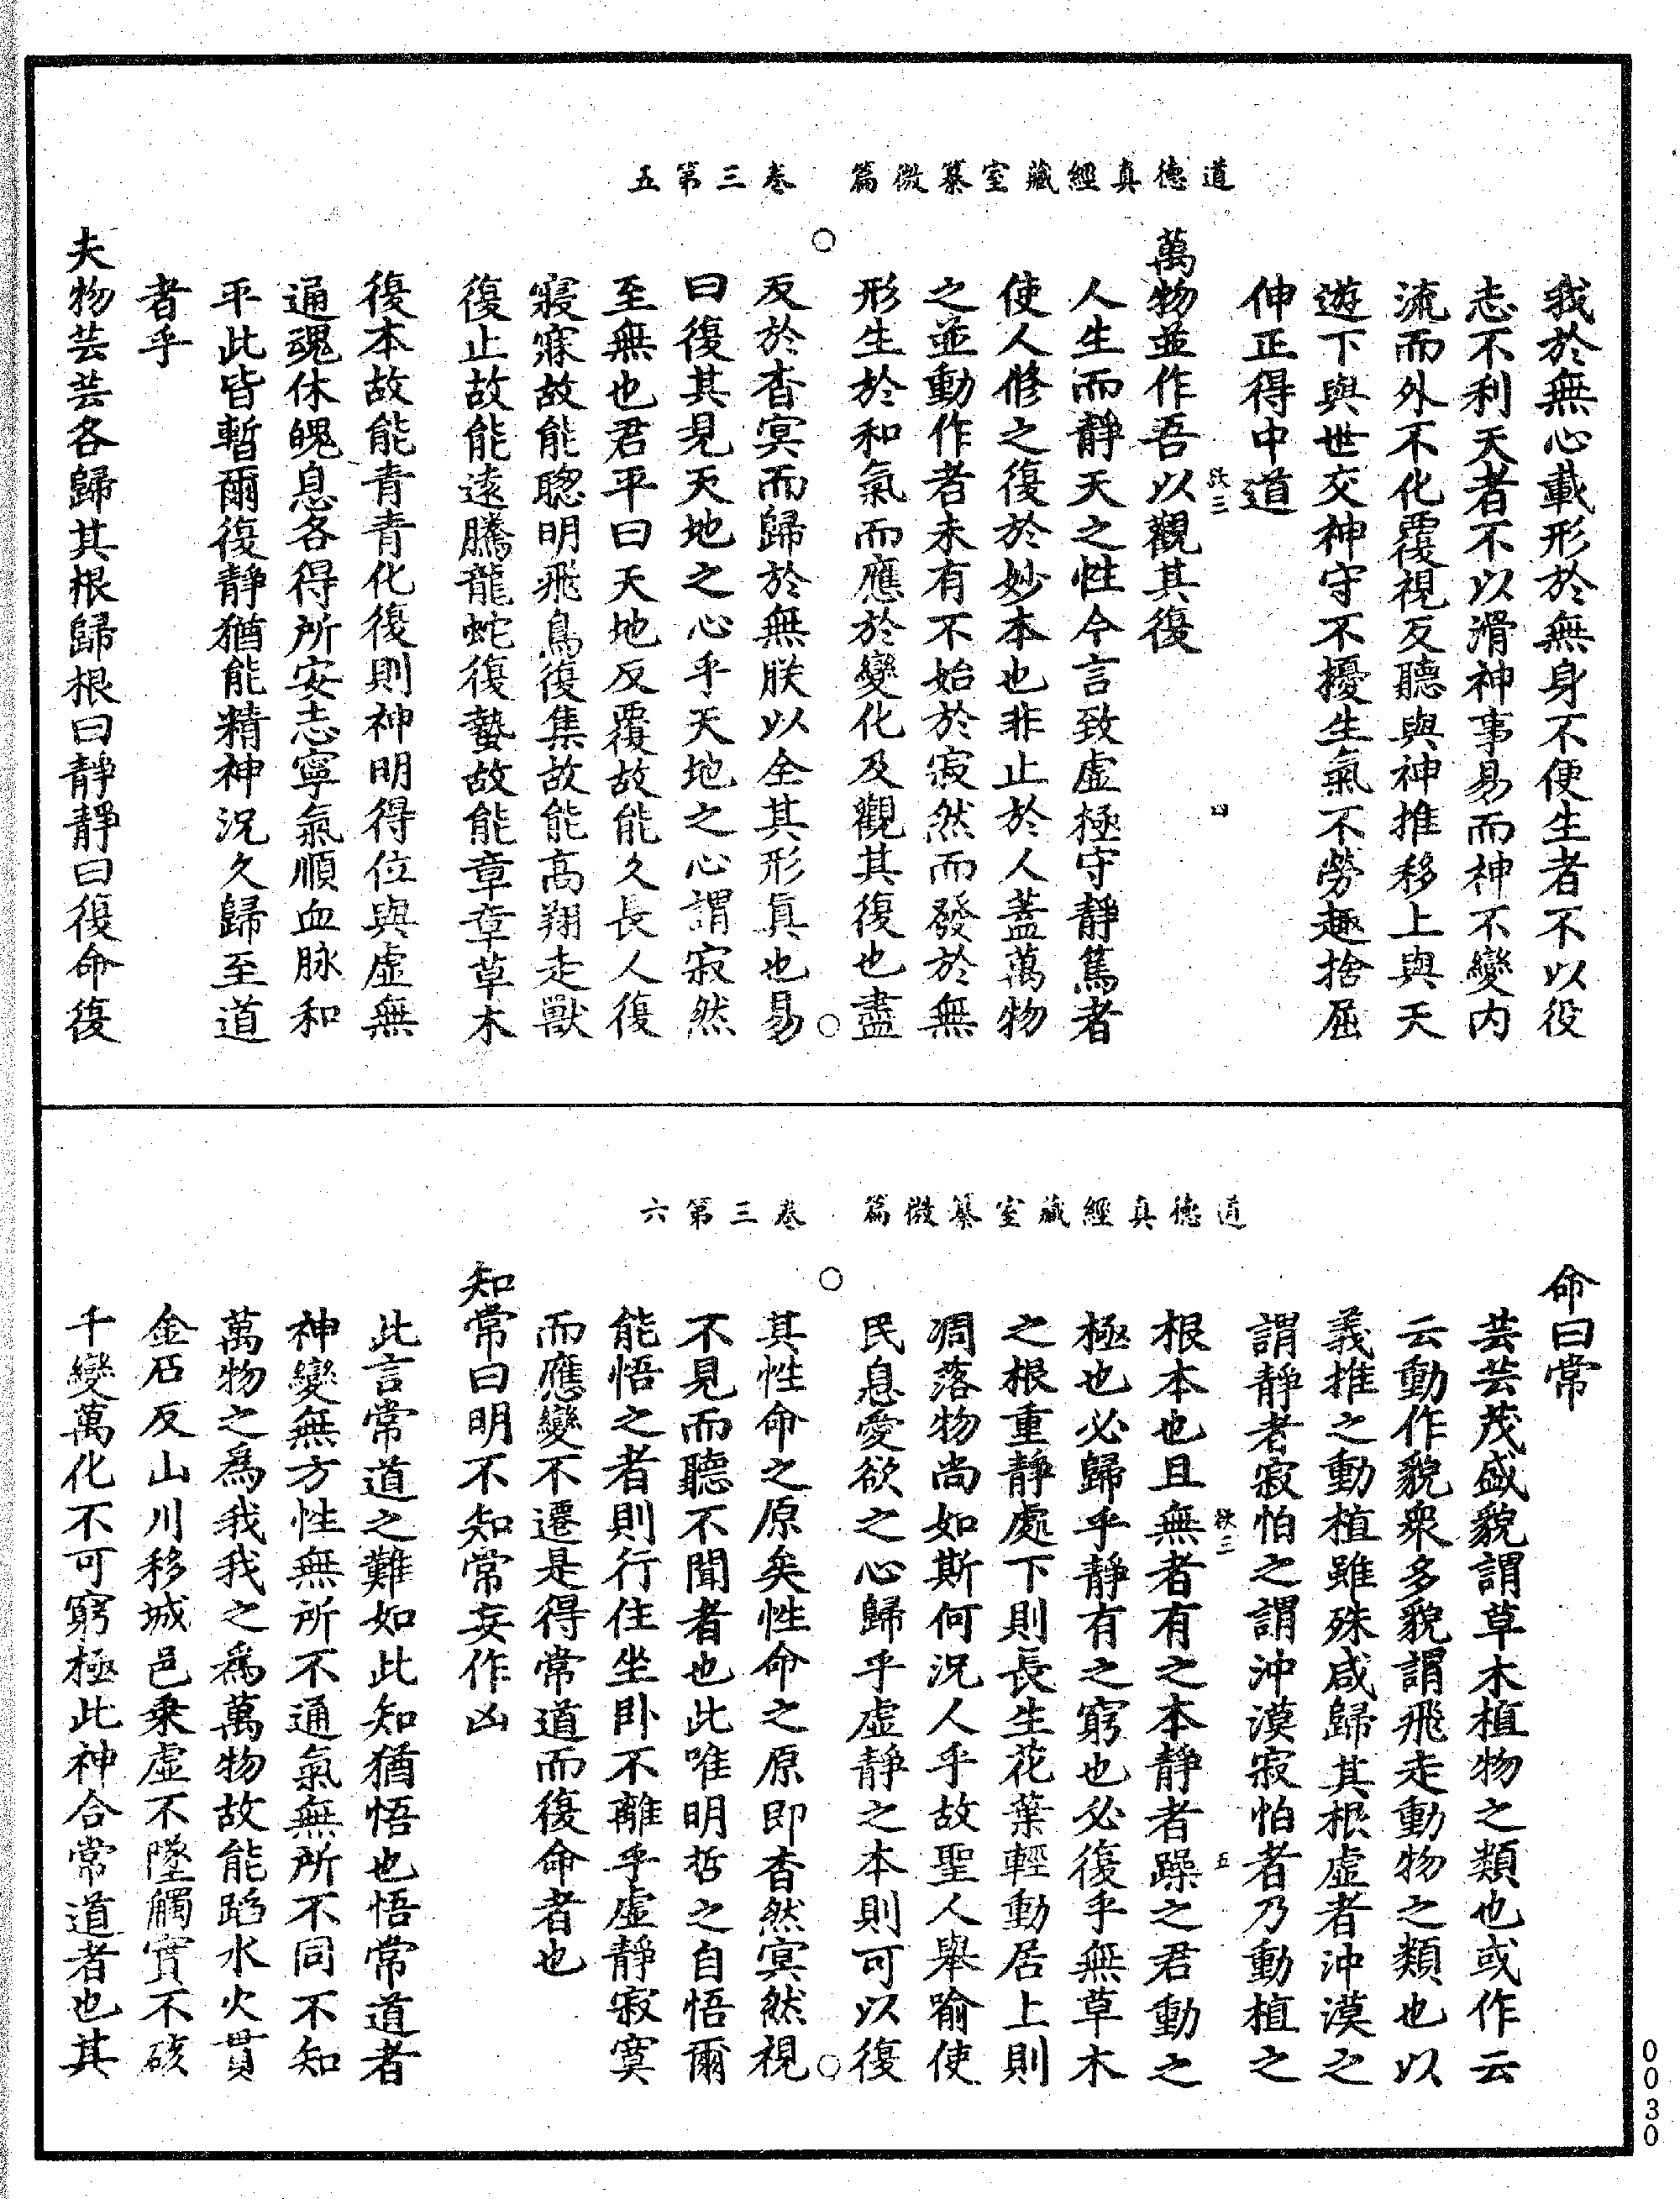 道德真經藏室纂微篇　卷三第五
我於無心載形於無身不便生者不以役
志不利天者不以滑神事易而神不變內
流而外不化覆視反聽與神推移上與天
遊下與世交神守不擾生氣不勞趣捨屈
伸正得中道
四
萬物並作吾以觀其復
人生而靜天之性今言致虛極守靜篤者
使人修之復於妙本也非止於人蓋萬物
之並動作者未有不始於寂然而發於無
形生於和氣而應於變化及觀其復也盡
反於杳冥而歸於無朕以全其形真也易
曰復其見天地之心乎天地之心謂寂然
至無也君平曰天地反覆故能久長人復
寢寐故能聰明飛鳥復集故能高翔走獸
復止故能遠騰龍蛇復蟄故能章章草木
復本故能青青化復則神明得位與虛無
通魂休魄息各得所安志寧氣順血脉和
平此皆暫爾復靜猶能精神況久歸至道
者乎
夫物芸芸各歸其根歸根曰靜靜曰復命復
道德真經藏室纂微篇　卷三第六
命曰常
芸芸茂盛貌謂草木植物之類也或作云
云動作貌衆多貌謂飛走動物之類也以
義推之動植雖殊咸歸其根虛者沖漠之
謂靜者寂怕之謂沖漠寂怕者乃動植之
五
根本也且無者有之本靜者躁之君動之
極也必歸乎靜有之窮也必復乎無草木
之根重靜處下則長生花葉輕動居上則
凋落物尚如斯何況人乎故聖人舉喻使
民息愛欲之心歸乎虛靜之本則可以復
其性命之原矣性命之原即杳然冥然視
不見而聽不聞者也此唯明哲之自悟爾
能悟之者則行住坐卧不離乎虛靜寂寞
而應變不遷是得常道而復命者也
知常曰明不知常妄作凶
此言常道之難如此知猶悟也悟常道者
神變無方性無所不通氣無所不同不知
萬物之爲我我之爲萬物故能蹈水火貫
金石反山川移城邑乗虛不墜觸實不硋
千變萬化不可窮極此神合常道者也其
0030